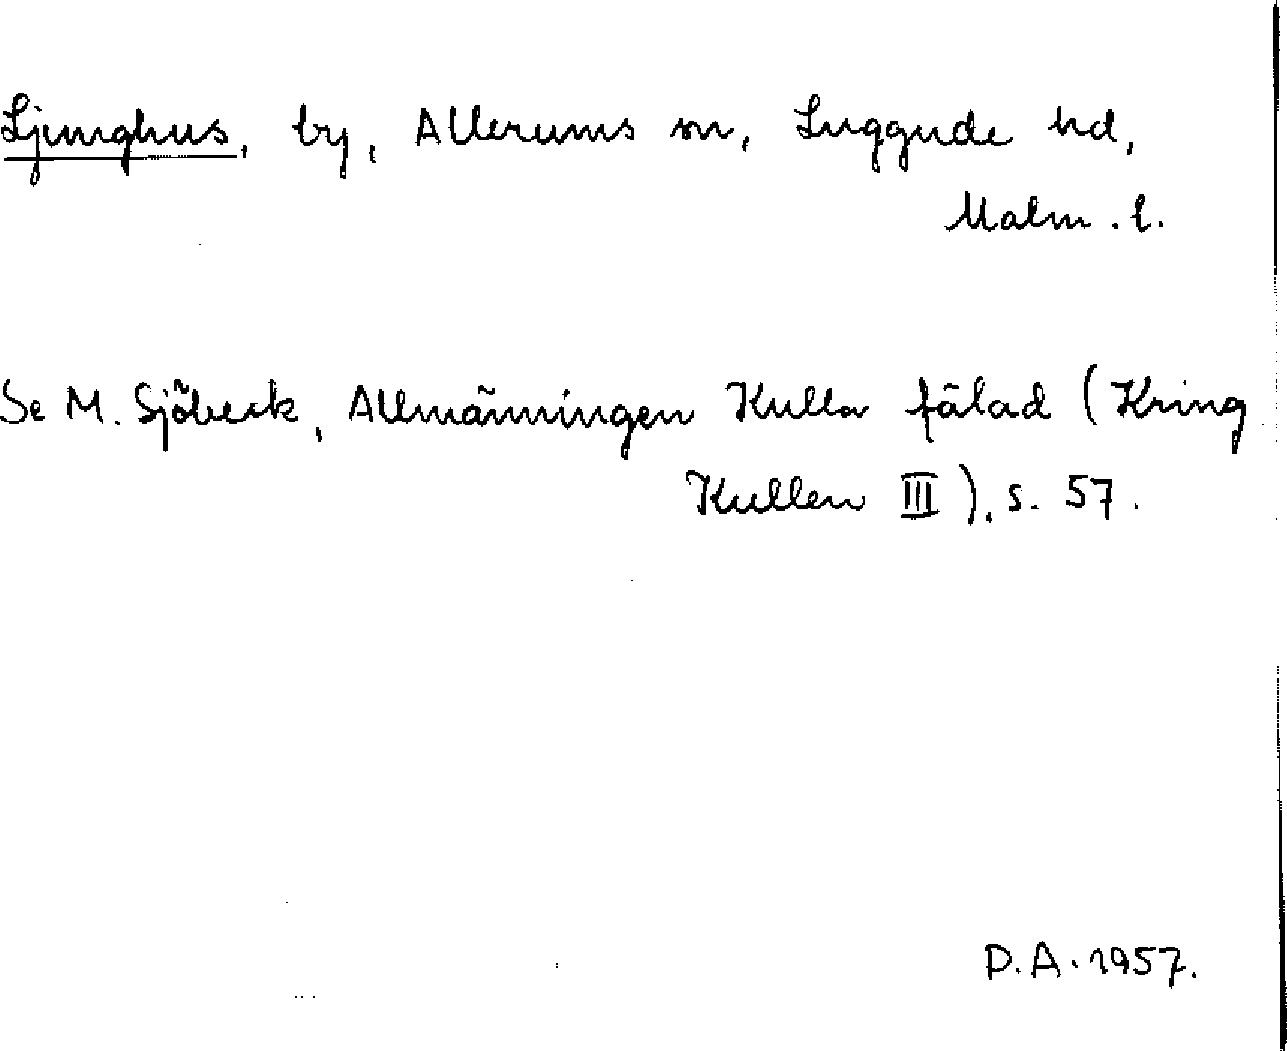 Ljunghus, by, Allerums sn, Luggude hd,
Malm. l.
Se M. Sjöbeck, Allmänningen Kulla fälad (Kring
Kullen III), s. 57.
D.A. 1957.